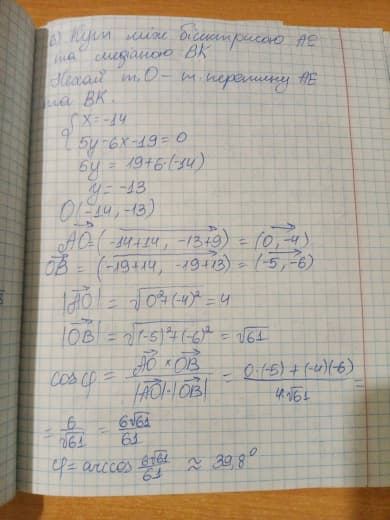 в) Кут між бісектрисою AE
та медіаною BK
Нехай т.O – т. перетину AE
та BK.
{ x = -14
5y - 6x - 19 = 0
5y = 19 + 6·(-14)
y = -13
O(-14, -13)
AO = (-14+14, -13+9) = (0, -4)
OB = (-19+14, -19+13) = (-5, -6)
|AO| = √0²+(-4)² = 4
|OB| = √(-5)²+(-6)² = √61
cos φ = AO × OB / |AO|·|OB| = 0·(-5) + (-4)(-6) / 4·√61 =
= 6/√61 = 6√61/61
φ = arccos 6√61/61 ≈ 39,8°